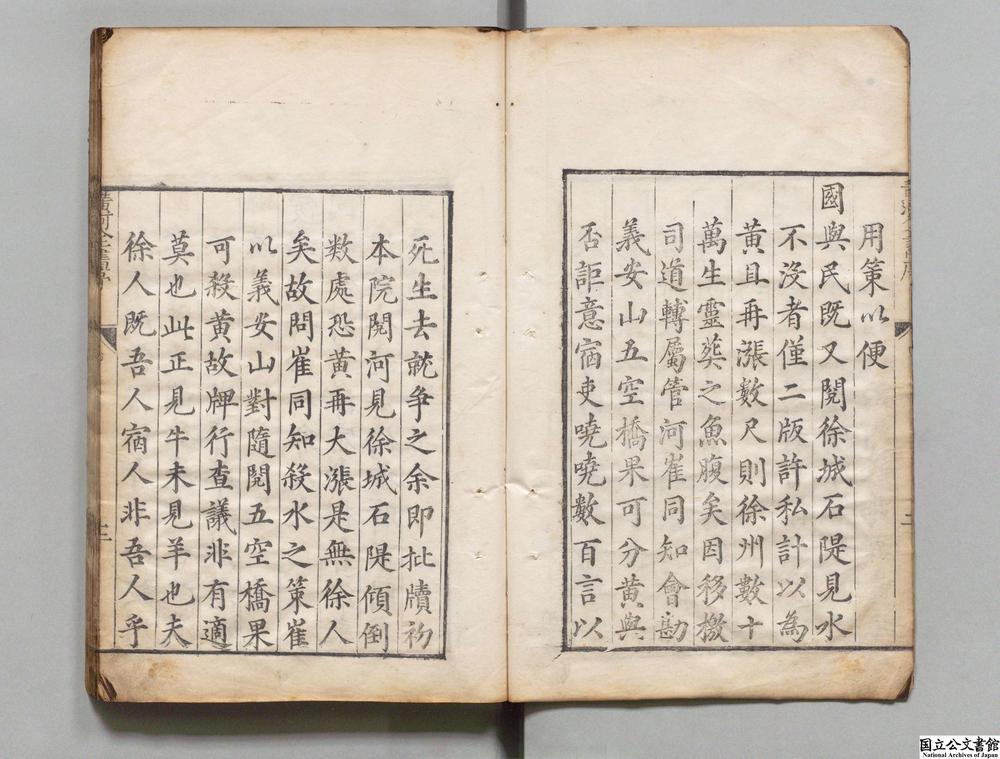 用策以便
國與民既又閱徐城石隄見水
不沒者僅二版許私計以為
黃且再漲數尺則徐州數十
萬生靈葬之魚腹矣因移檄
司道轉屬管河崔同知會勘
義安山五空橋果可分黃與
否詎意宿吏嘵嘵數百言以
死生去就爭之余即批牘初
本院閱河見徐城石隄傾倒
数處恐黃再大漲是無徐人
矣故問崔同知殺水之策崔
以義安山對隨閱五空橋果
可殺黃故牌行查議非有適
莫也此正見牛未見羊也夫
徐人既吾人宿人非吾人乎
国立公文書館
National Archives of Japan